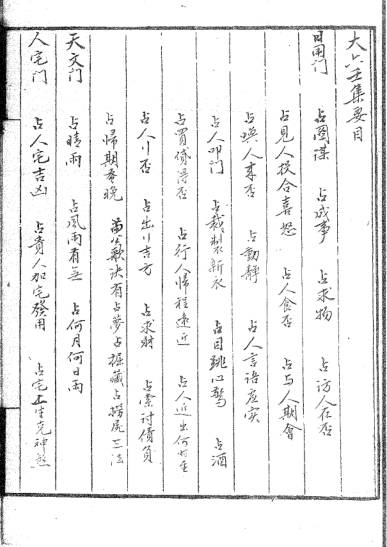 大六壬集要目
日用门 占图谋 占成事 占求物 占访人在否
占见人投合喜怒 占人食否 占与人期会
占唤人来否 占動静 占人言语虚实
占人叩门 占裁製新衣 占目跳心驚 占酒
占買貸得否 占行人帰程遠近 占人近出何时至
占人行否 占出行吉方 占求財 占索讨债負
占帰期蚤晚 苗公歌诀有占夢占掘藏占撈屍三法
天文门 占晴雨 占風雨有無 占何月何日雨
人宅门 占人宅吉凶 占貴人加宅發用 占宅上生克神煞